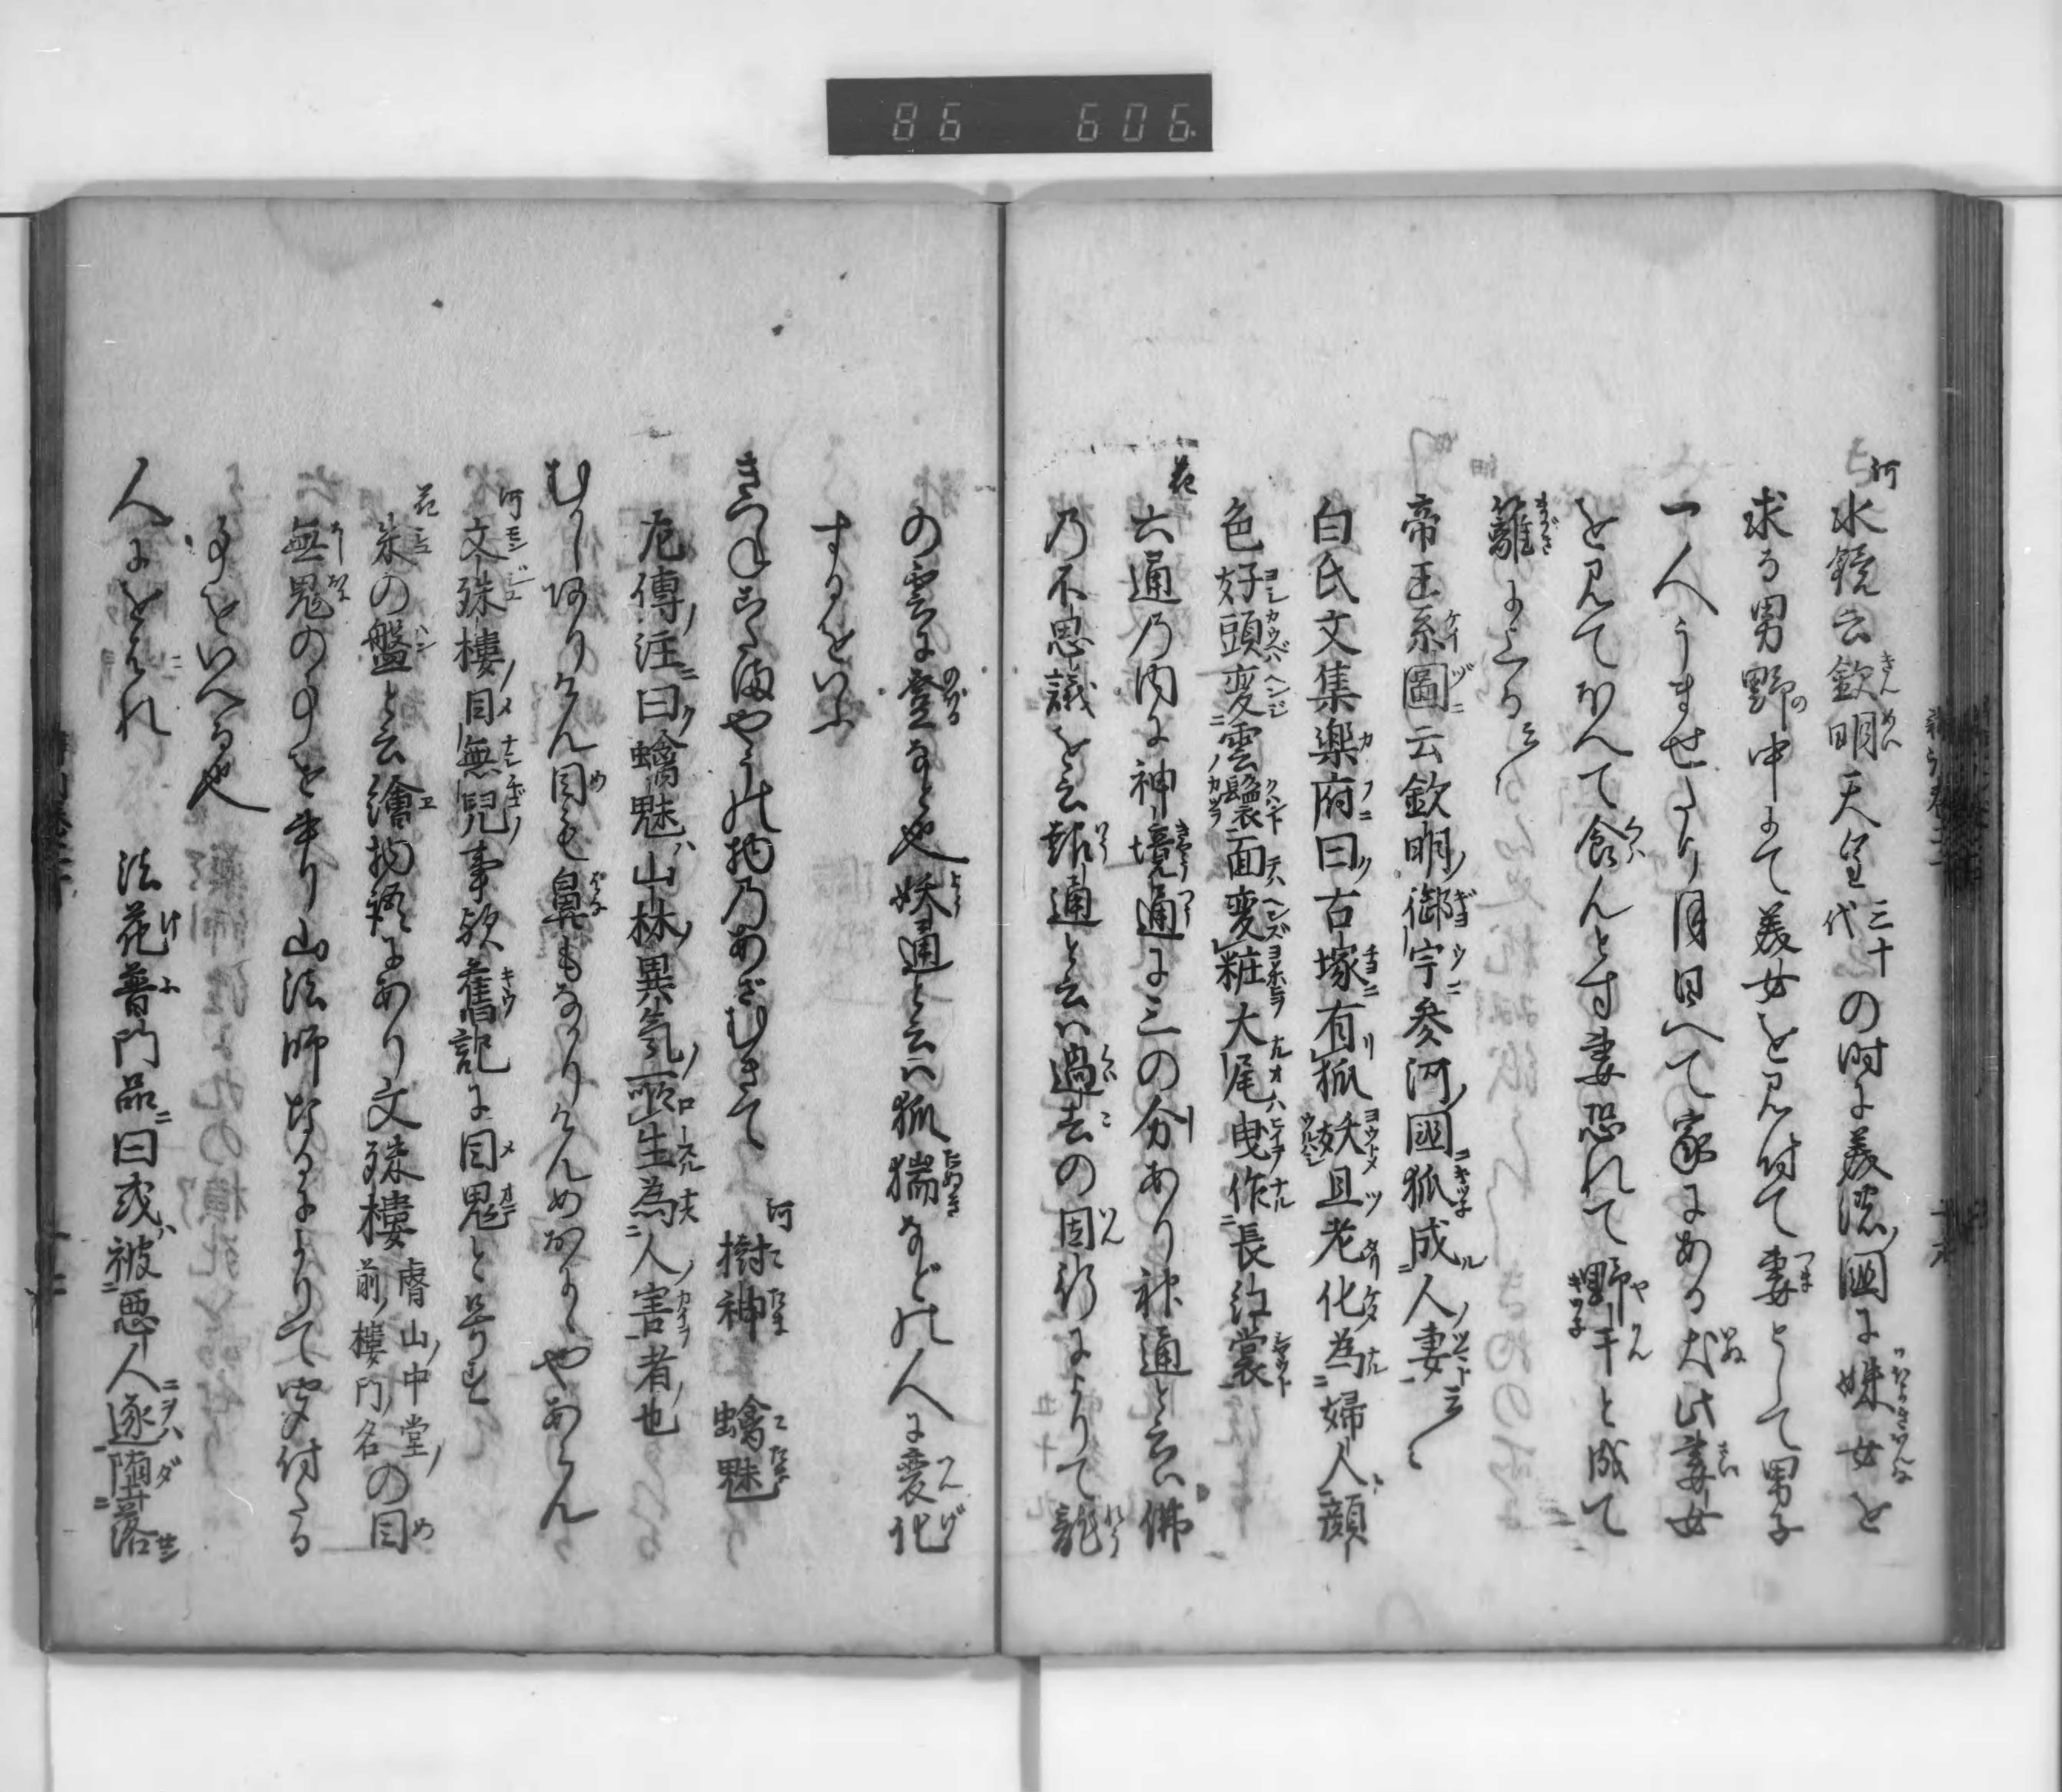 86 606
河 水鏡云欽明天皇三十代の時に美濃国に姝女を
求る男野中にて美女を見付て妻として男子
一人うませたり月日へて家にある犬此妻女
を見てほへて食んとす妻恐れて野干と成て
籬にのる云々
帝王系圖云欽明ノ御宇参河ノ國狐成人妻云々
白氏文集楽府曰古塚有狐妖且老化為婦人顔
色好頭変雲鬟面変粧大尾曳作長紅裳
花 六通乃内に神境通に三の分あり神通と云ハ佛
乃不思議を云報通と云ハ過去の因行によりて龍
の雲に登なと也妖通と云ハ狐猯などの人に変化
するをいふ
きつねこたまやうの物乃あざむきて 河 樹神 𧴥魅
左傳ノ注曰魑魅ハ山林ノ異気所生為人害者也
むかしありけん目も鼻もなかりけんめおにゝやあらん
河 文殊樓目無児事欤舊記に目鬼と号す
花 朱の盤と云繪物語にあり文殊樓 膚山ノ中堂ノ前ノ樓門ノ名 の目
無鬼の事を幸り山法師なるによりて思付たる
事をいへる也
人にをはれ 法花普門品曰或被悪人逐堕落